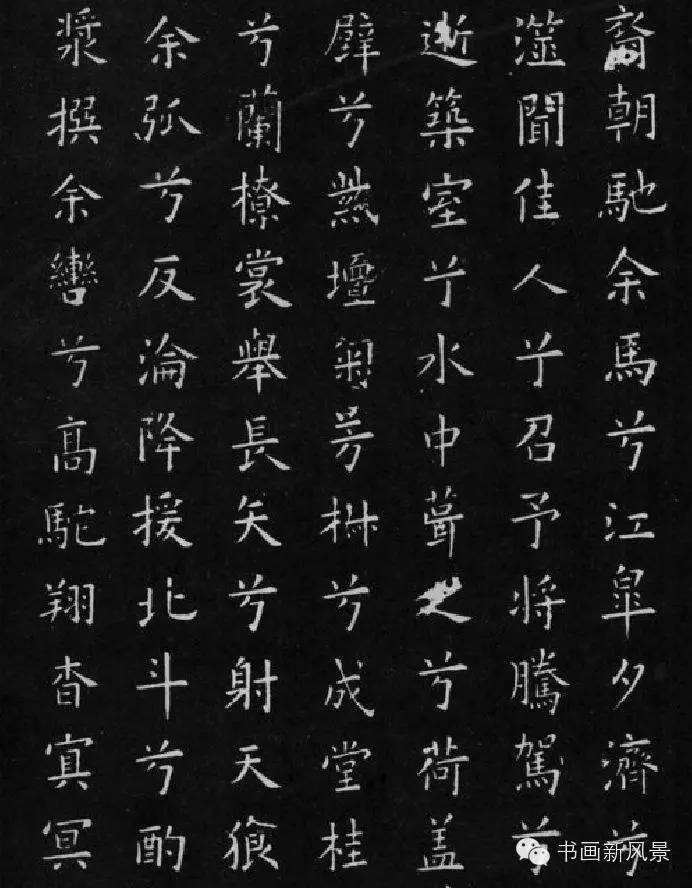 裔朝馳余馬兮江皐夕濟兮
澨聞佳人兮召予将騰駕兮
逝築室兮水中葺之兮荷盖
壁兮紫壇匊芳椒兮成堂桂
兮蘭橑裳舉長矢兮射天狼
余弧兮反淪降援北斗兮酌
漿撰余轡兮高駝翔杳冥冥
书画新风景